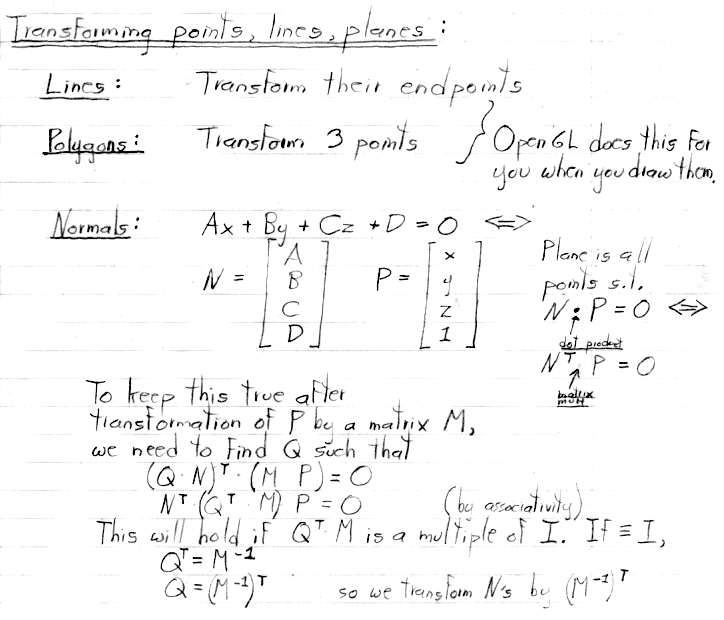 Transforming points, lines, planes :
Lines : Transform their endpoints
Polygons : Transform 3 points } OpenGL does this for
you when you draw them.
Normals : Ax + By + Cz + D = 0 <=>
N = [ A B C D ] P = [ x y z 1 ]
Plane is all
points s.t.
N • P = 0 <=>
dot product
N^T P = 0
matrix
mult
To keep this true after
transformation of P by a matrix M,
we need to find Q such that
(Q · N)^T · (M P) = 0
N^T · (Q^T · M) P = 0 (by associativity)
This will hold if Q^T · M is a multiple of I. If ≡ I,
Q^T = M^-1
Q = (M^-1)^T so we transform N's by (M^-1)^T